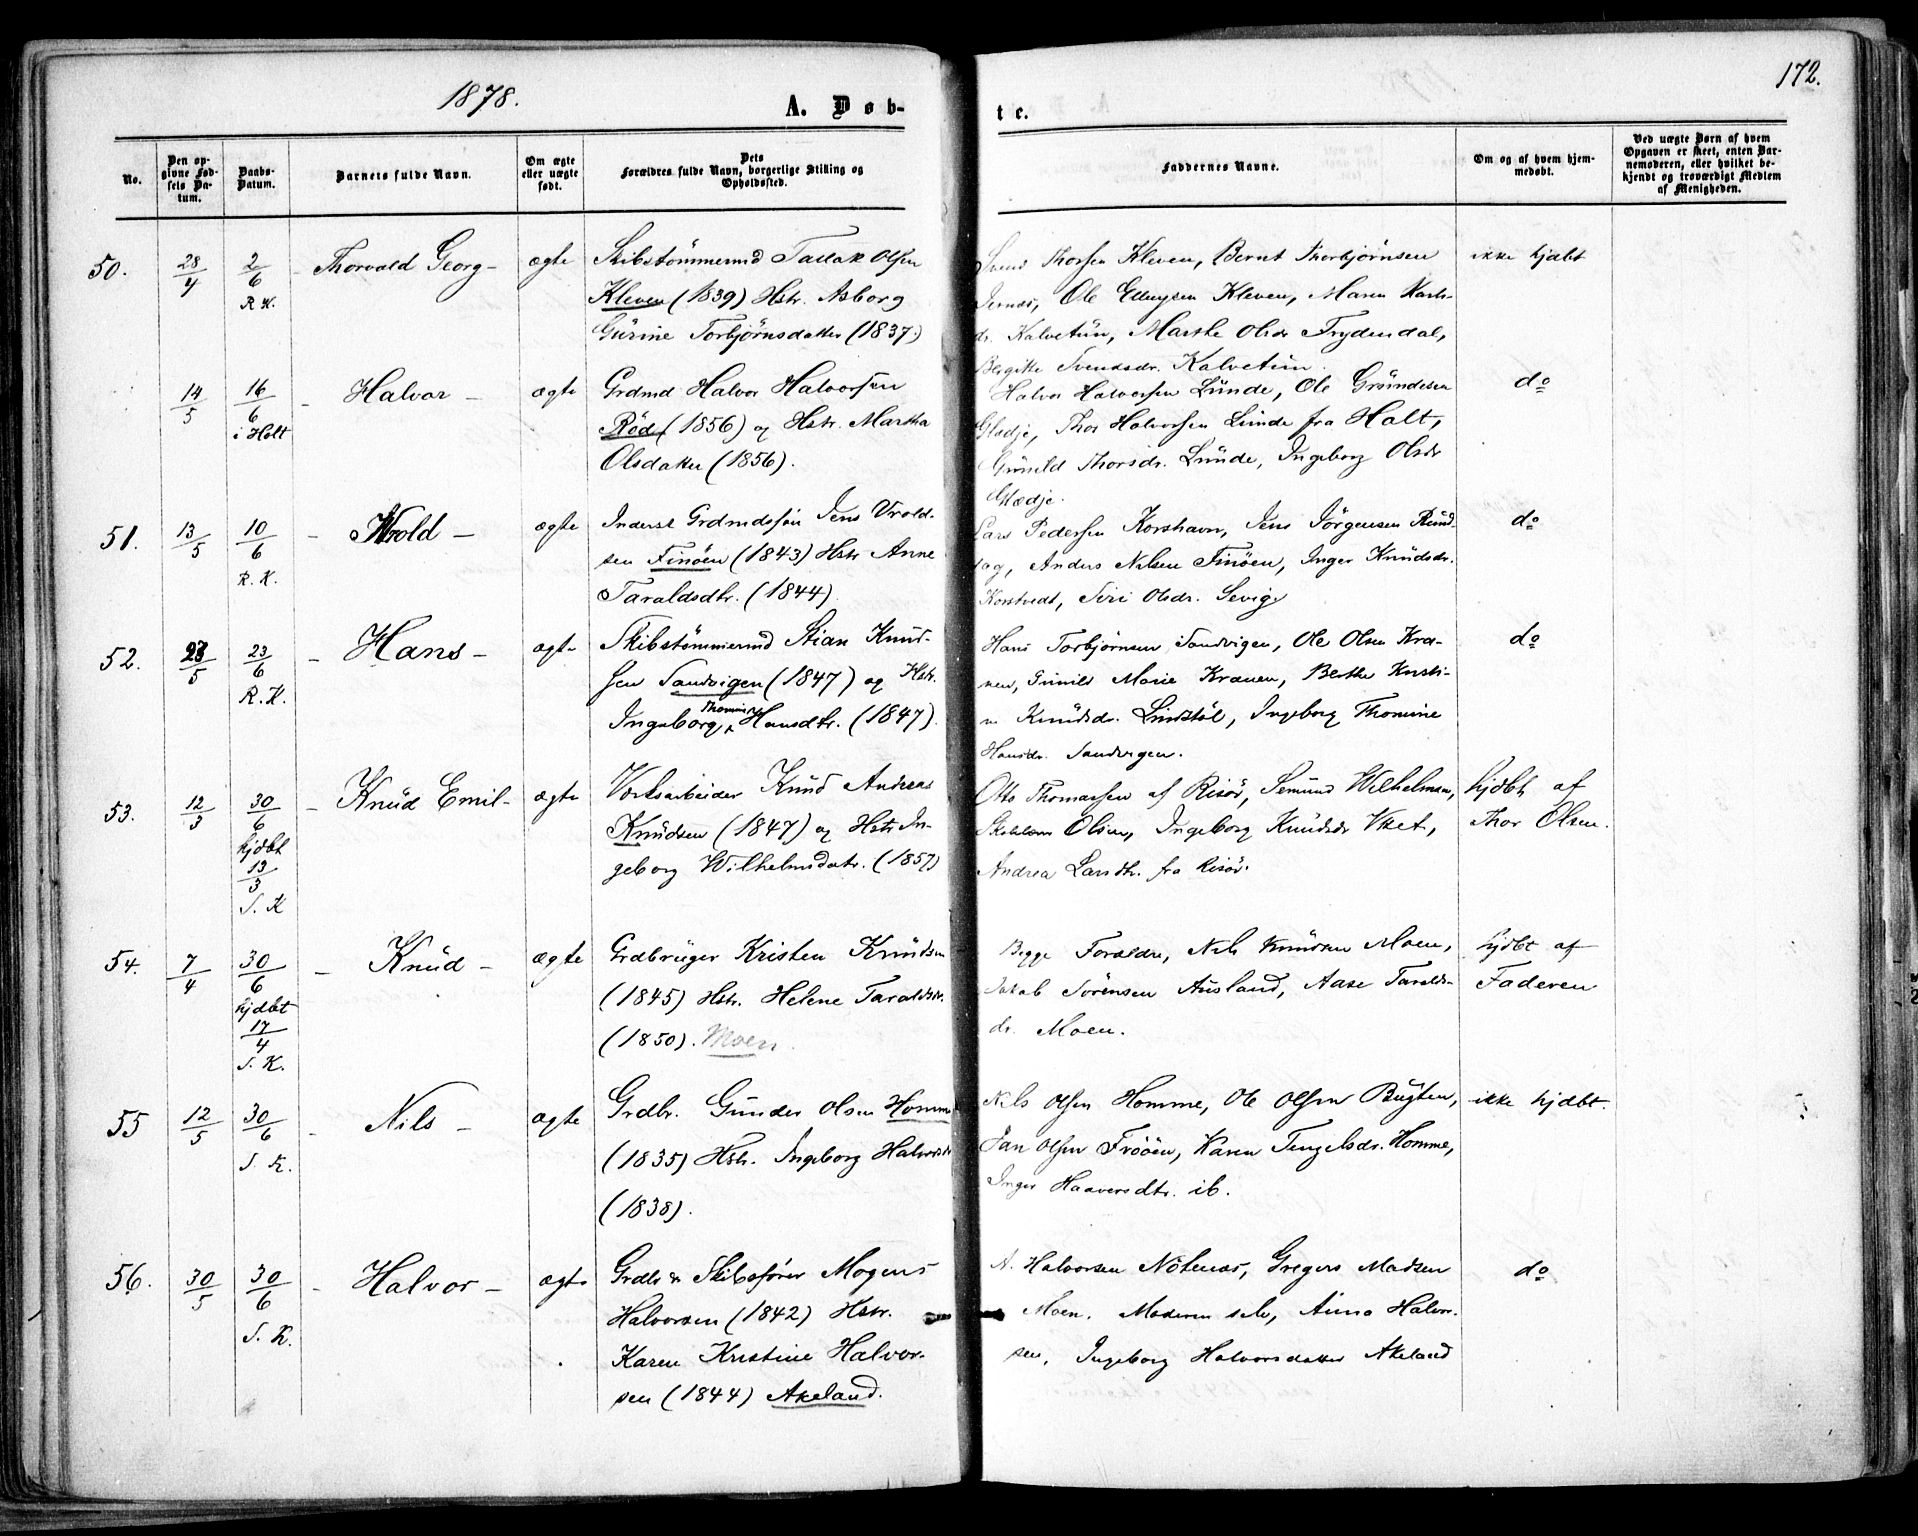 1878.
A. Døb-
te.
172.
No.
Den op-
givne Fød-
sels Da-
tum.
Daabs-
Datum.
Barnets fulde Navn.
Om ægte
eller uægte
født.
Dets
Forældres fulde Navn, borgerlige Stilling og
Opholdssted.
Faddernes Navne.
Om og af hvem hjem-
medøbt.
Ved uægte Børn af hvem
Opgaven er skeet, enten Bar-
nemoderen, eller hvilket be-
kjendt og troværdigt Medlem
af Menigheden.
50.
28/4
2/6
R. K.
Thorvald Georg -
ægte
Skibstømmermd Tallak Olsen
Kleven (1839) Hstr. Asborg
Gurine Torbjørnsdatter (1837.)
Svend Thorsen Kleven, Bernt Thorbjørnsen
Ole Ellingsen Kleven, Maren
dr. Kalvetun, Marthe Olsdr Frydendal,
Bergitte Svendsdr. Kalvetun.
ikke hjdbt
14/5
16/6
i Holt
- Halvor -
ægte
Grdmd Halvor Halvorsen
Röd (1856) og Hstr. Martha
Olsdatter (1856).
Halvor Halvorsen Lunde, Ole Gründesen
Glædje, Thor Halvorsen Lunde fra Holt,
Gunild Thorsdr. Lunde, Ingeborg Olsdr
Glædje.
do
51.
13/5
10/6
R. K.
- Wrold -
ægte
Inderst Grdmdssøn Jens Vrold-
sen Finöen (1843) Hstr Anne
Taraldsdtr. (1844).
Lars Pedersen Korshavn, Jens Jörgensen
Anders Nilsen Finöen, Inger Knudsdr.
Korstvedt, Siri Olsdr. Sevige
do
52.
23/5
23/6
R. K.
- Hans -
ægte
Skibstömmermd Stian Knud-
sen Sandvigen (1847) og Hstr.
Ingeborg Thomine Hansdtr. (1847).
Hans Torbjørnsen Sandvigen, Ole Olsen Kra-
nen, Gunild Marie Kranen, Berthe Kristi-
n Knudsdr. Lindstöl, Ingeborg Thomine
Hansdr. Sandvigen.
do
53.
12/3
30/6
hjdbt
13/3
S. K
- Knud Emil -
ægte
Verksarbeider Knud Andreas
Knudsen (1847) og Hstr In-
geborg Wilhelmsdatr. (1857)
Otto Thomassen af Risör, Semund Wilhelmsen,
Olsen, Ingeborg Knudsdr
Andrea Larsdtr. fra Risör.
hjdbt af
Thor Olsen.
54.
7/4
30/6
hjdbt
17/4
S. K.
- Knud -
ægte
Grdbruger Kristen Knudsen
(1845) Hstr. Helene Taraldsdr.
(1850). Moen.
Begge Forældre, Nils Knudsen Moen,
Jakob Sörensen Ausland, Aase Taralds-
dr. Moen.
hjdbt af
Faderen
55
12/5
30/6
S. K.
- Nils -
ægte
Grdbr. Gunder Olsen Homme
(1835) Hstr. Ingeborg Halvorsdr
(1838).
Nils Olsen Homme, Ole Olsen Bugten,
Jan Olsen Fröøen, Karen Tengelsdr. Homme,
Inger Haaversdtr. ib.
ikke hjdbt.
56.
30/5
30/6
S. K.
- Halvor -
ægte
Grdbr & Skibsfører Mogens
Halvorsen (1842) Hstr.
Karen Kristine Halvor-
sen (1844) Akeland.
A. Halvorsen Nötenæs, Gregers Madsen
Moen. Moderen selv, Anna Halvor-
sen, Ingeborg Halvorsdatter Akeland
do